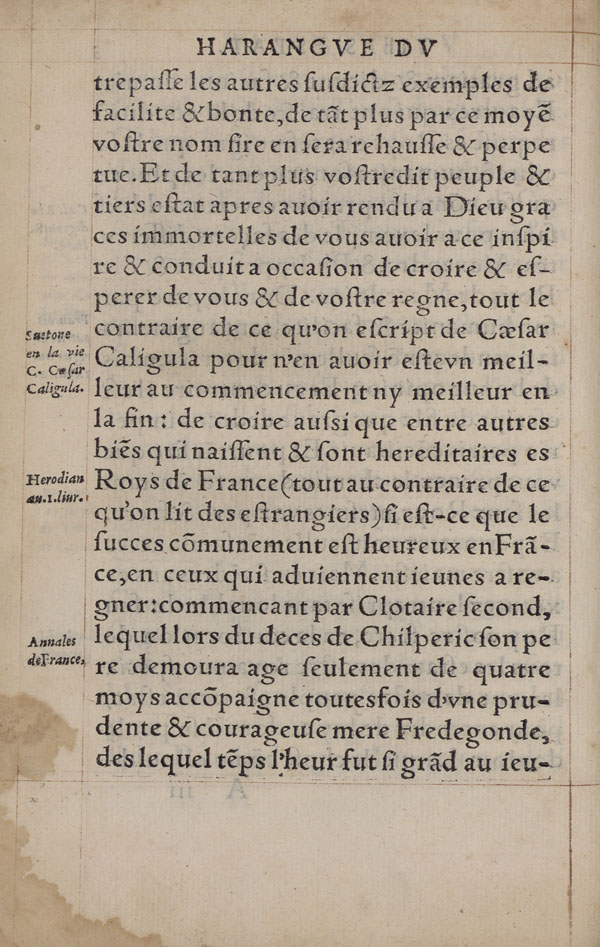 HARANGVE DV
trepaſſe les autres ſuſdictz exemples de
facilite & bonte, de tãt plus par ce moyẽ
voſtre nom ſire en ſera rehauſſe & perpe
tue. Et de tant plus voſtredit peuple &
tiers eſtat apres auoir rendu a Dieu gra
ces immortelles de vous auoir a ce inſpi
re & conduit a occaſion de croire & eſ-
perer de vous & de voſtre regne, tout le
contraire de ce qu'on eſcript de Cæſar
Caligula pour n'en auoir eſte vn meil-
leur au commencement ny meilleur en
la fin : de croire auſsi que entre autres
biẽs qui naiſſent & ſont hereditaires es
Roys de France (tout au contraire de ce
qu'on lit des eſtrangiers) ſi eſt-ce que le
ſucces cõmunement eſt heureux en Frã-
ce, en ceux qui aduiennent ieunes a re-
gner: commencant par Clotaire ſecond,
lequel lors du deces de Chilperic ſon pe
re demoura age ſeulement de quatre
moys accõpaigne toutesfois d'vne pru-
dente & courageuſe mere Fredegonde,
des lequel tẽps l'heur fut ſi grãd au ieu-
Suetone
en la vie
C. Cæſar
Caligula.
Herodian
au.1.liur.
Annales
de France,